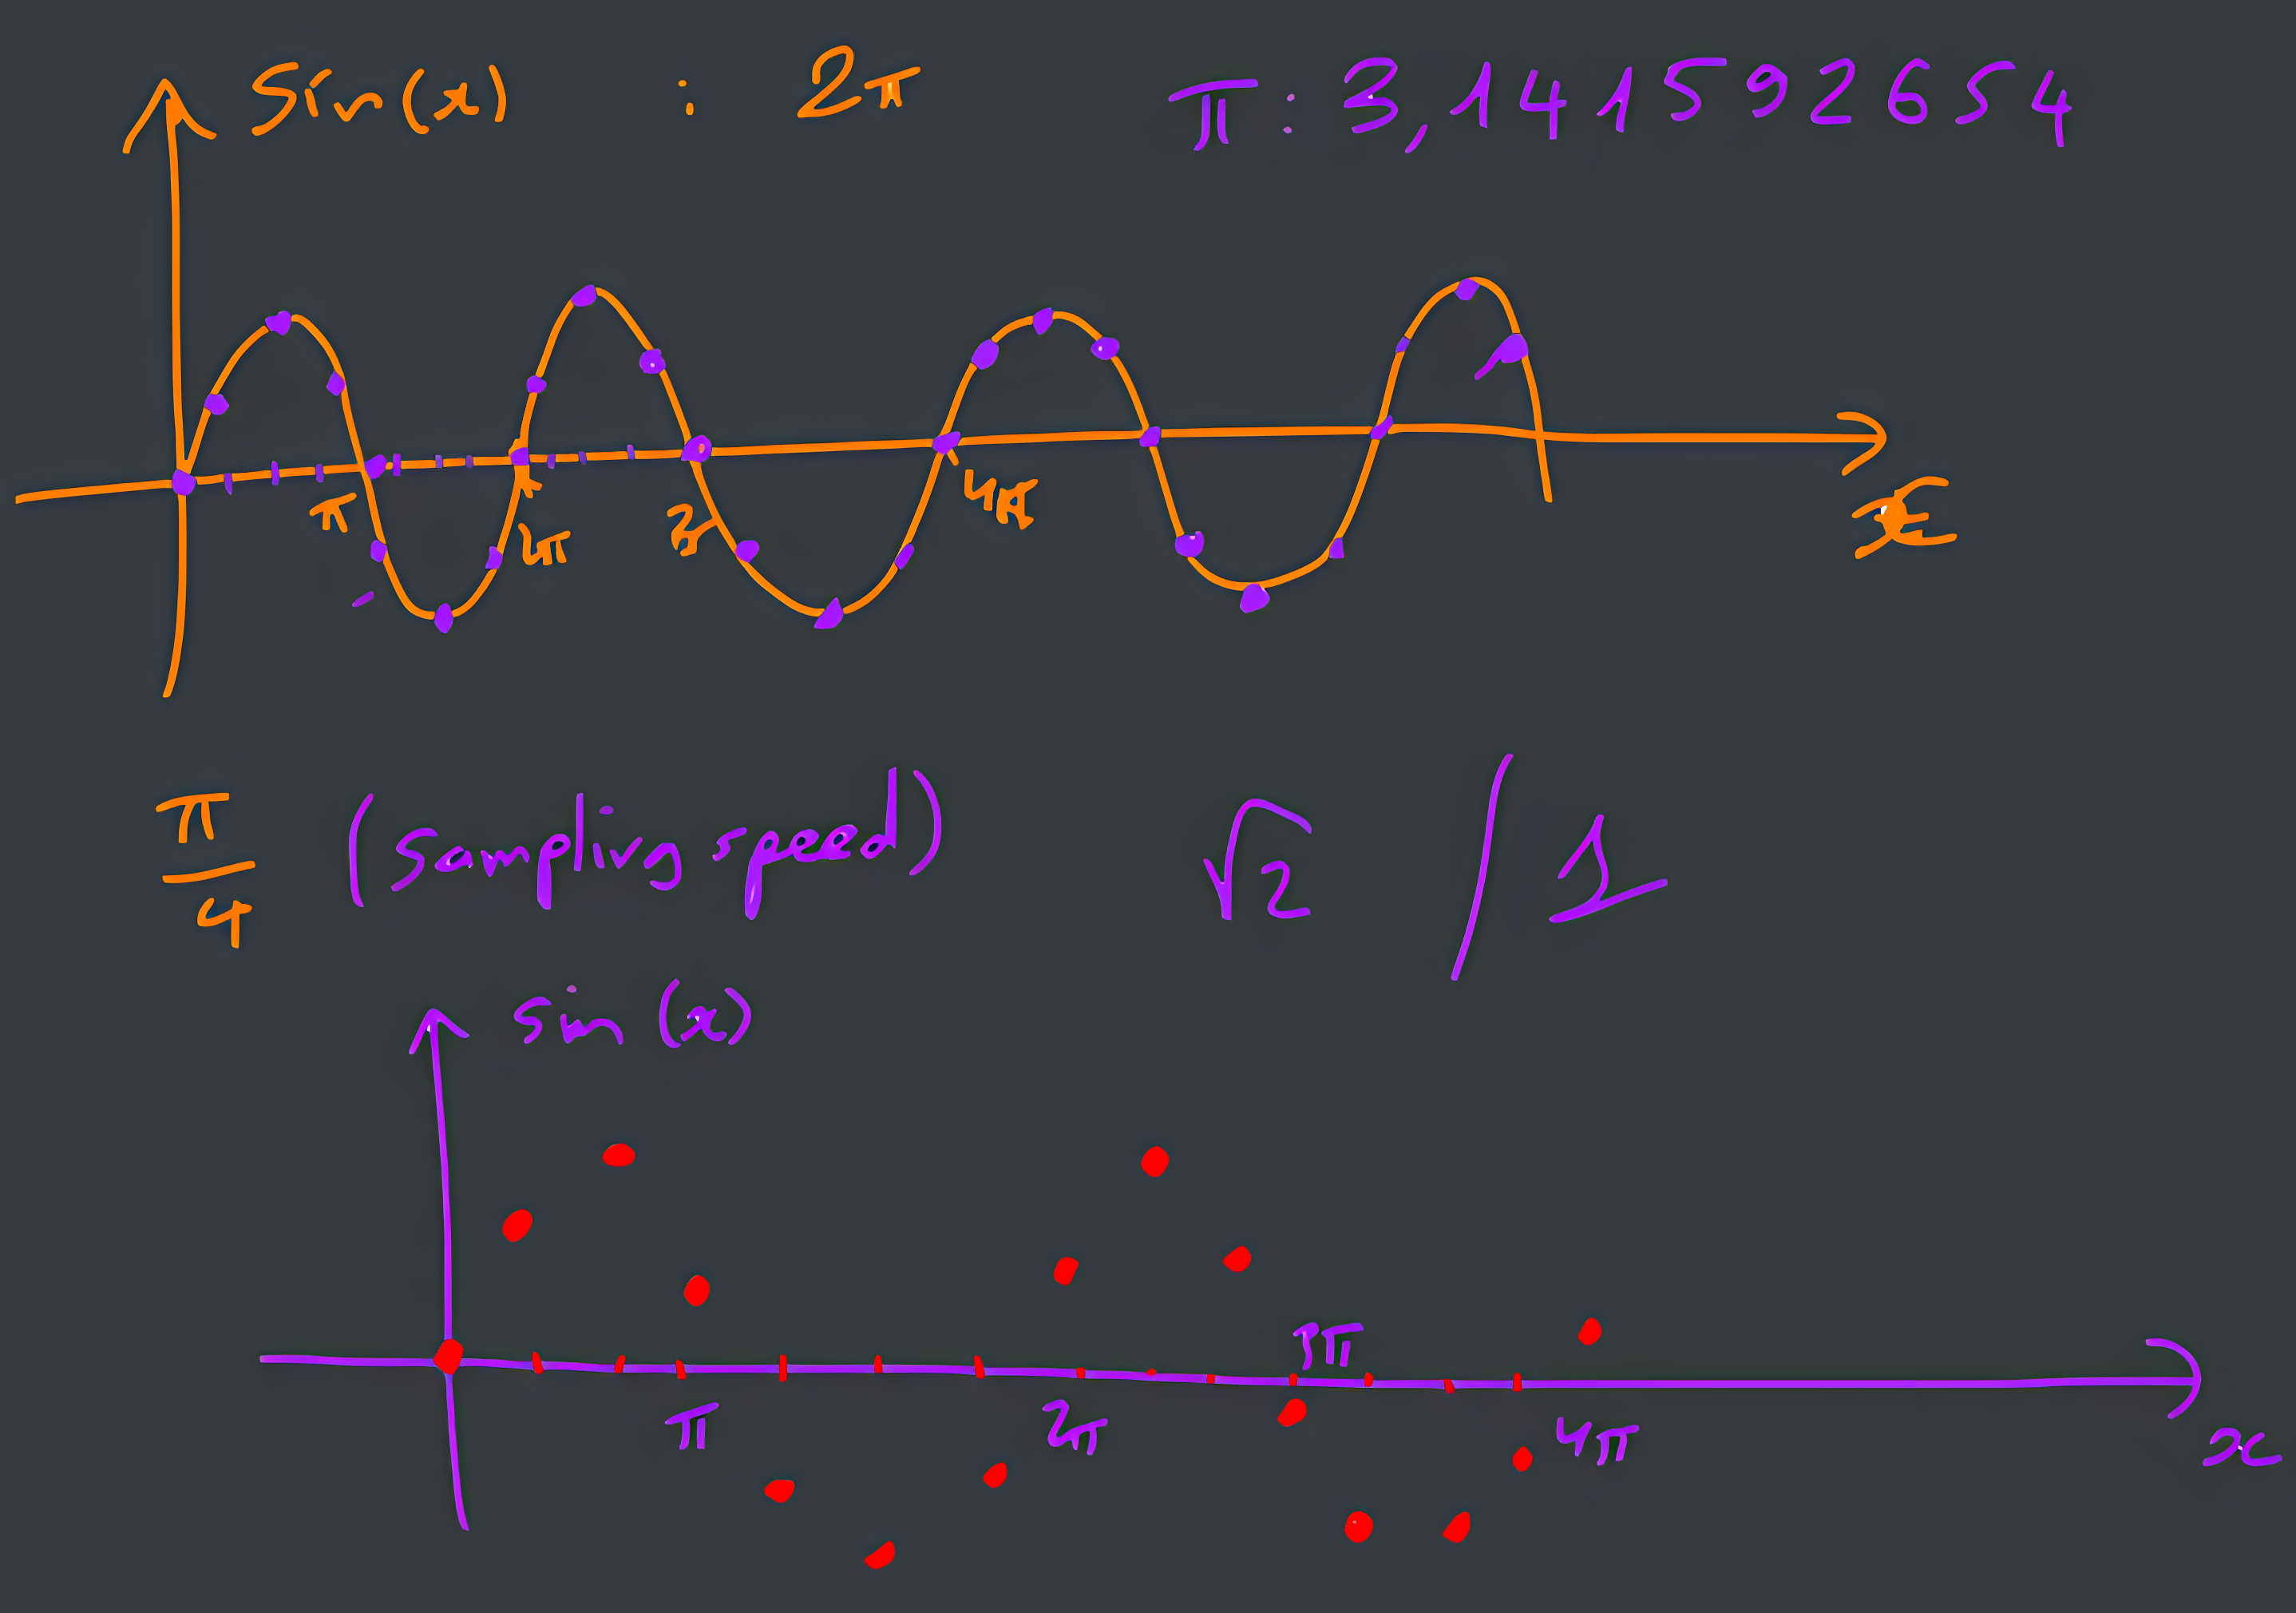 Sin(x) : 2π
π : 3,141592654
π
2π
4π
x
π/4 (sampling speed) √2 / 1
sin (x)
3π
π 2π 4π
x